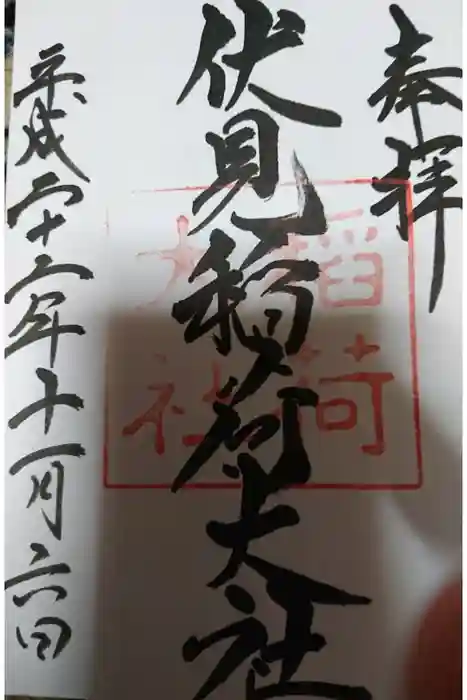 奉拝
伏見稲荷大社
稲荷
大社
平成二十二年十一月六日